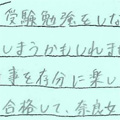 受験勉強をしな
しまうかもしれませ
事を存分に楽し
合格して、奈良女